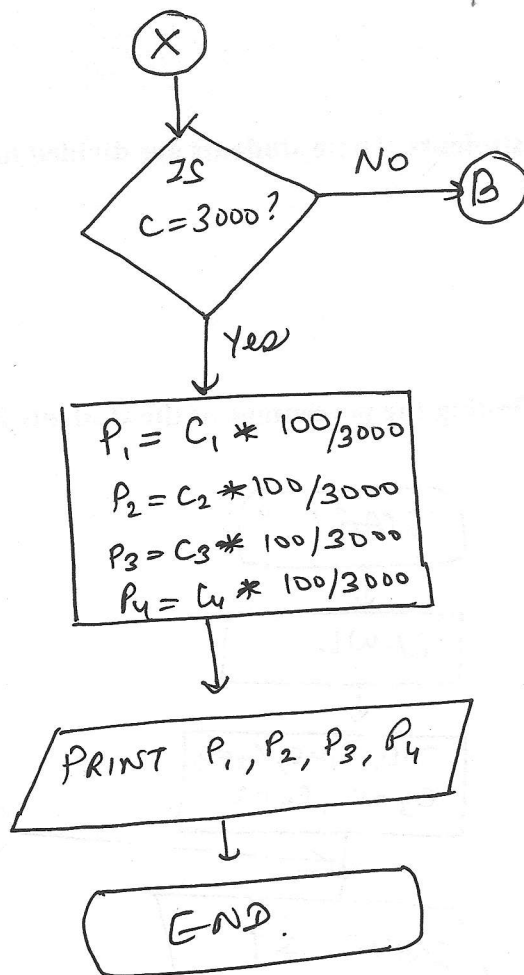 X
IS
C = 3000?
NO
B
Yes
P₁ = C₁ * 100/3000
P₂ = C₂ * 100/3000
P₃ = C₃ * 100/3000
P₄ = C₄ * 100/3000
PRINT P₁, P₂, P₃, P₄
END.